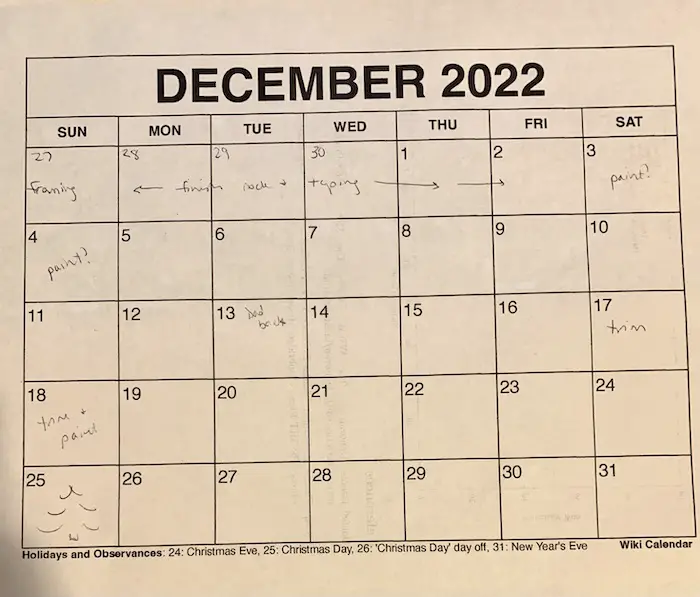 DECEMBER 2022
SUN MON TUE WED THU FRI SAT
27 28 29 30 1 2 3
framing ← finish rock + taping → → paint?
4 5 6 7 8 9 10
paint?
11 12 13 14 15 16 17
Dad
back
trim
18 19 20 21 22 23 24
trim +
paint
25 26 27 28 29 30 31
Holidays and Observances: 24: Christmas Eve, 25: Christmas Day, 26: 'Christmas Day' day off, 31: New Year's Eve
Wiki Calendar